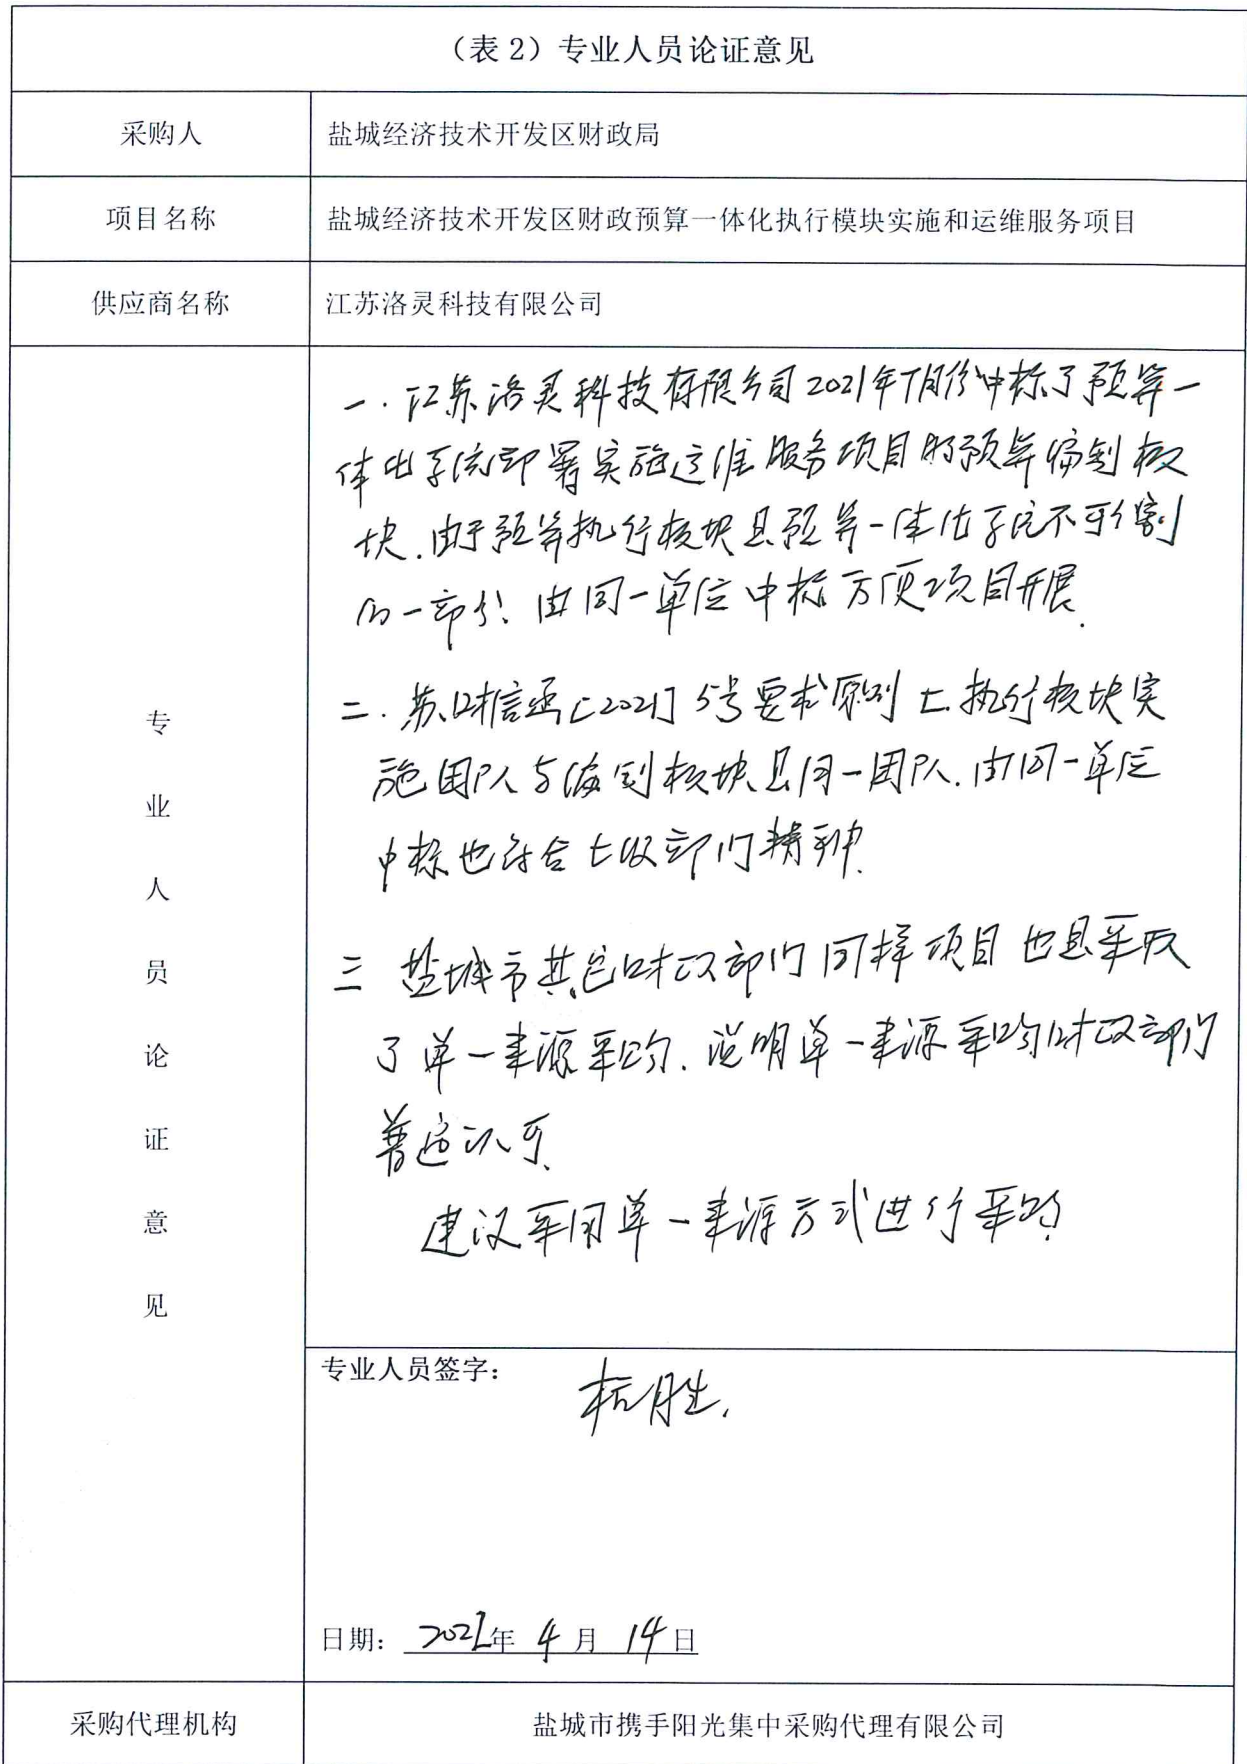 （表 2）专业人员论证意见
采购人
盐城经济技术开发区财政局
项目名称
盐城经济技术开发区财政预算一体化执行模块实施和运维服务项目
供应商名称
江苏洛灵科技有限公司
专业人员论证意见
一.江苏洛灵科技有限公司2021年7月份中标了预算一
体化系统部署实施运维服务项目的预算编制模
块.由于预算执行模块是预算一体化系统不可分割
的一部分.由同一单位中标方便项目开展.
二.苏财信函[2021]5号要求原则上执行模块实
施团队与编制模块是同一团队.由同一单位
中标也符合上级部门精神.
三 盐城市其它财政部门同样项目也是采取
了单一来源采购.说明单一来源采购财政部门
普遍认可.
建议采用单一来源方式进行采购
专业人员签字：
杭胜.
日期： 2022年 4 月 14日
采购代理机构
盐城市携手阳光集中采购代理有限公司